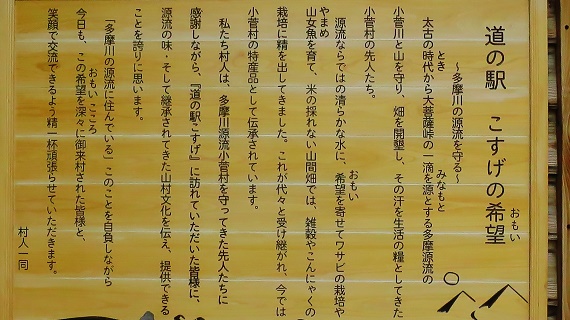 道の駅 こすげの希望
おもい
～多摩川の源流を守る～
太古の時代から大菩薩峠の一滴を源とする多摩源流の
とき
みなもと
小菅川と山を守り、畑を開墾し、その汗を生活の糧としてきた
小菅村の先人たち。
源流ならではの清らかな水に、希望を寄せてワサビの栽培や
おもい
山女魚を育て、米の採れない山間畑では、雑穀やこんにゃくの
やまめ
栽培に精を出してきました。これが代々と受け継がれ、今では
小菅村の特産品として伝承されています。
私たち村人は、多摩川源流小菅村を守ってきた先人たちに
感謝しながら、『道の駅こすげ』に訪れていただいた皆様に、
源流の味・そして継承されてきた山村文化を伝え、提供できる
ことを誇りに思います。
「多摩川の源流に住んでいる」このことを自負しながら
今日も、この希望を深々に御来村された皆様と、
おもい こころ
笑顔で交流できるよう精一杯頑張らせていただきます。
村人一同